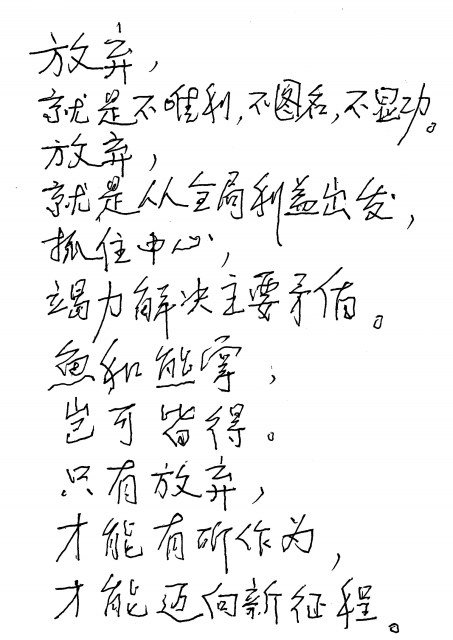 放弃，
就是不唯利，不图名，不显功。
放弃，
就是从全局利益出发，
抓住中心，
竭力解决主要矛盾。
鱼和熊掌，
岂可皆得。
只有放弃，
才能有所作为，
才能迈向新征程。